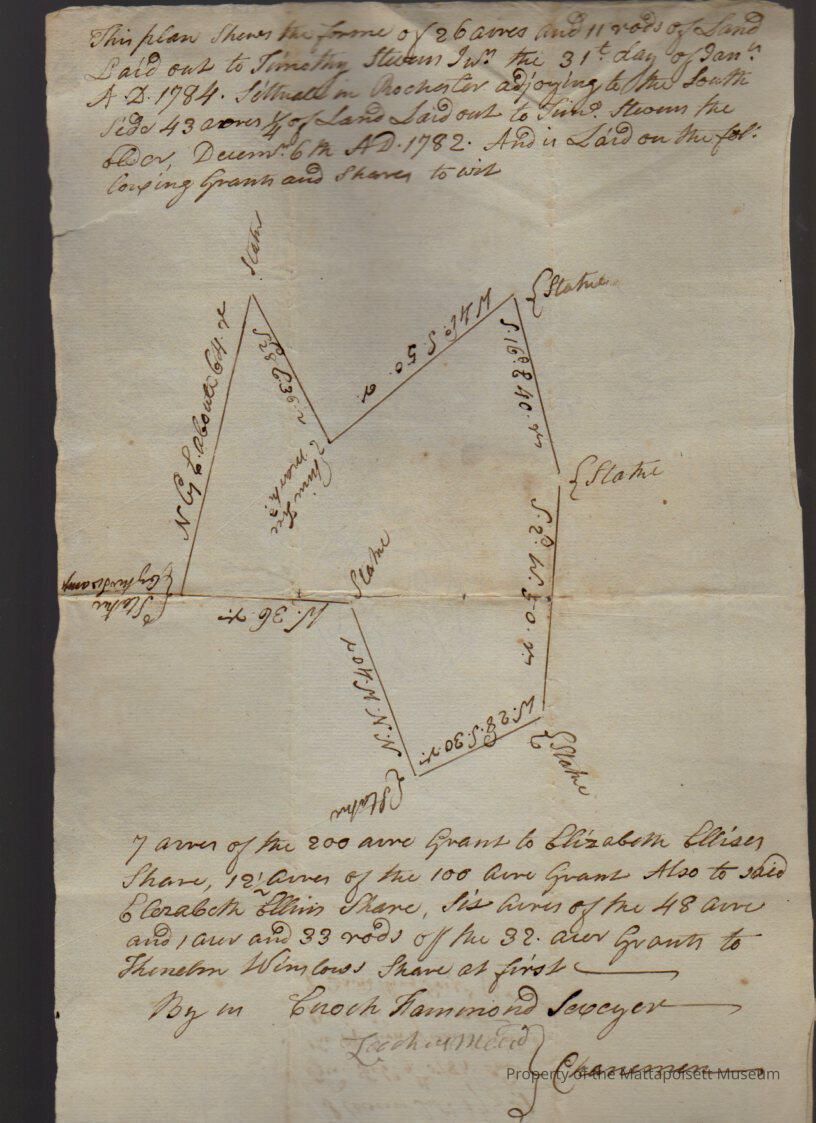 This plan Shews the forme of 26 acres and 11 rods of Land
Laid out to Timothy Stevens Junr. the 31t. day of Janr.
A.D. 1784. Sittuate in Rochester adjoying to the South
Side 43 acres 1/4 of Land Laid out to Timo. Stevens the
older, Decemr. 6th AD. 1782. And is Laid on the fol:
lowing Grants and Shares to wit
Stake
{Stake
N by E. about 64. r
S 28 E 39. r.
W 46. S. S. 50. r.
S. 16. E 40. rs
mark.d
{Stake
Stake
S. 2. W. 50. rs
{Stake
by the Swamp
W. 36. r:
N. N. W. 40 r
W. 28. S. 30 r:
{Stake
{Stake
7 acres of the 200 acre Grant to Elizabeth Ellises
Share, 12 acres of the 100 acre Grant Also to said
Elezabeth Ellis Share, Six acres of the 48 acre
and 1 acer and 33 rods of the 32. acer Grants to
Winslows Share at first
By m Enoch Hammond Seveyer
Chanemen
Property of the Mattapoisett Museum